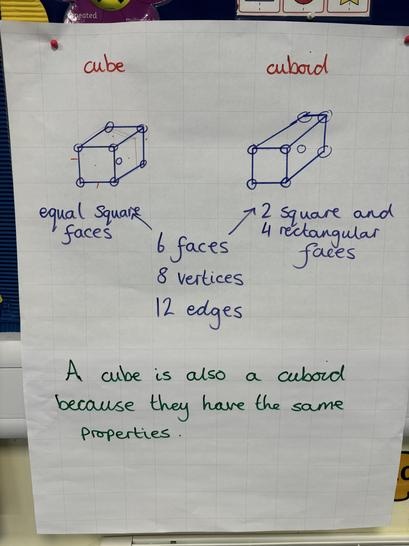 repeated.
cube
cuboid
equal square
faces
2 square and
4 rectangular
faces
6 faces
8 vertices
12 edges
A cube is also a cuboid
because they have the same
properties.